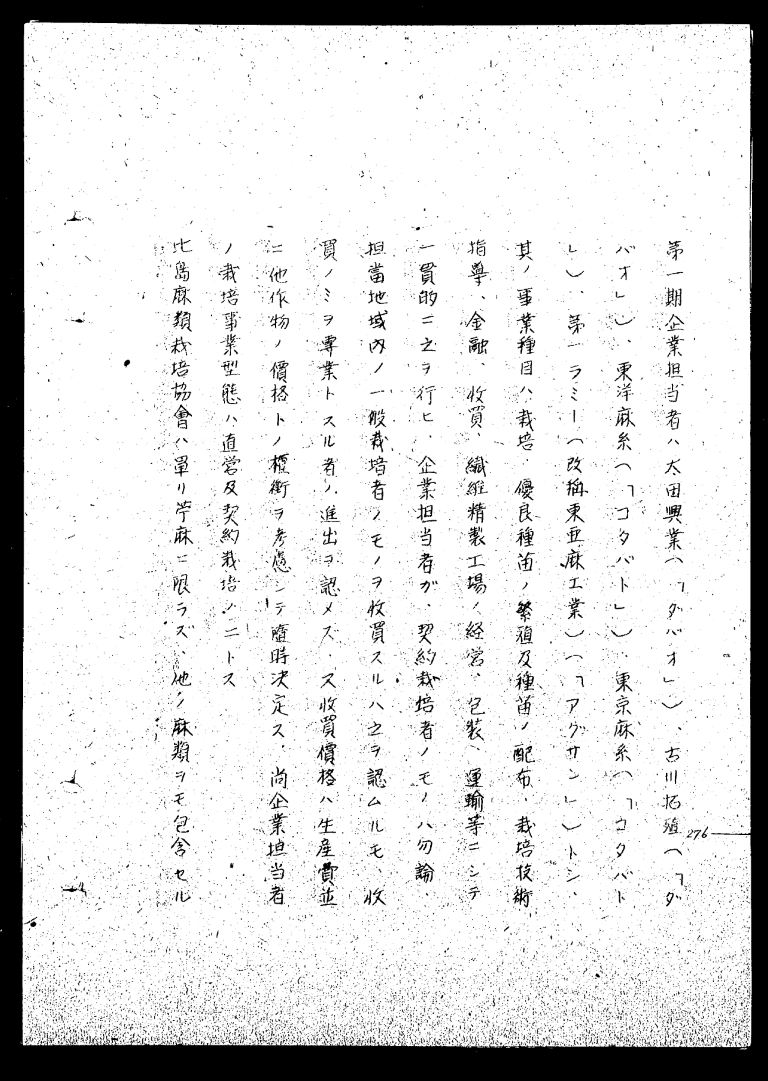 第一期企業担当者ハ太田興業（「ダバオ」）、古川拓殖（「ダ
バオ」）、東洋麻糸（「コタバト」）、東京麻糸（「コタバト
」）、第一ラミー（改称東亜麻工業）（「アグサン」）トシ、
其ノ事業種目ハ栽培、優良種苗ノ繁殖及種苗ノ配布、栽培技術
指導、金融、收買、繊維精製工場ノ経営、包装、運輸等ニシテ
一貫的ニ之ヲ行ヒ、企業担当者ガ、契約栽培者ノモノハ勿論、
担當地域内ノ一般栽培者ノモノヲ收買スルハ之ヲ認ムルモ、收
買ノミヲ専業トスル者ノ進出ヲ認メズ、又收買價格ハ生産費並
ニ他作物ノ價格トノ權衡ヲ考慮シテ隨時決定ス、尚企業担当者
ノ栽培事業型態ハ直営及契約栽培ノニトス
比島麻類栽培協會ハ單リ苧麻ニ限ラズ、他ノ麻類ヲモ包含セル
276